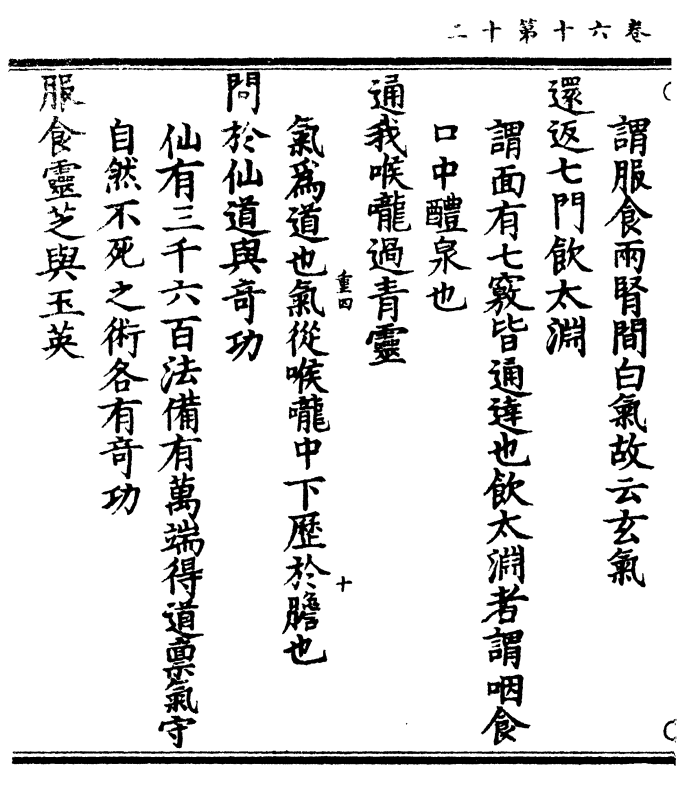 卷六十第十二
謂服食兩腎間白氣故云玄氣
還返七門飲太淵
謂面有七竅皆通達也飲太淵者謂咽食
口中醴泉也
通我喉嚨過青靈
重四
十
氣為道也氣從喉嚨中下歷於膽也
問於仙道與奇功
仙有三千六百法備有萬端得道稟氣守
自然不死之術各有奇功
服食靈芝與玉英